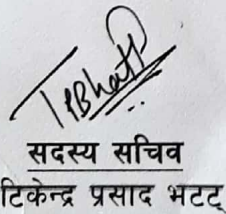 TPBhatt
सदस्य सचिव
टिकेन्द्र प्रसाद भटट्